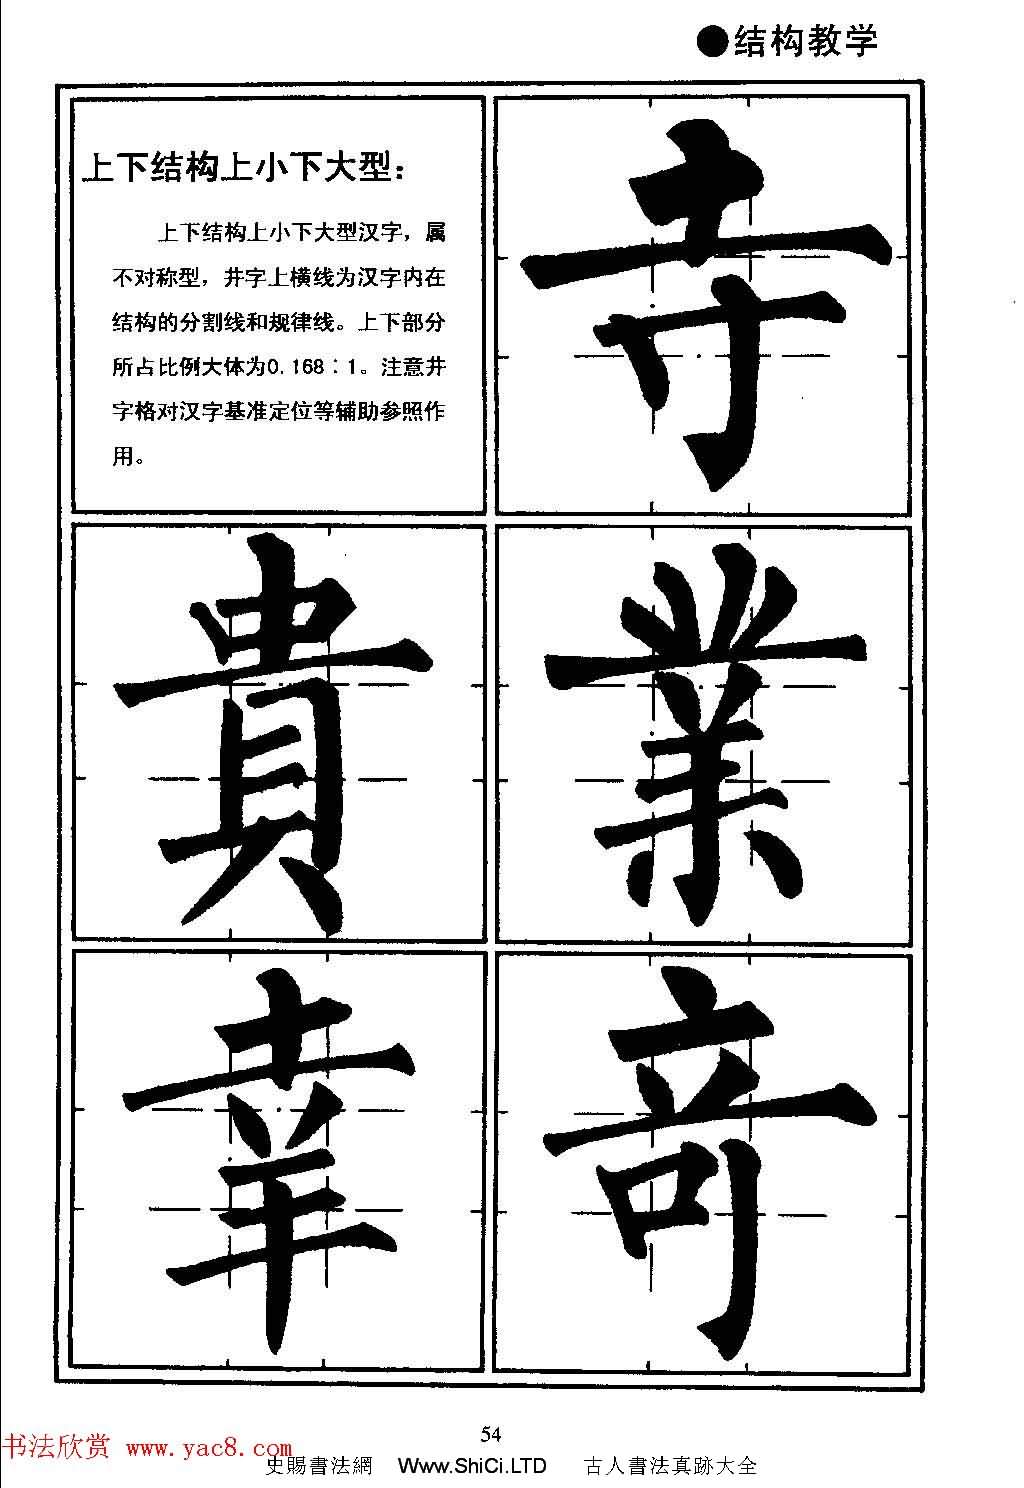 ●结构教学
上下结构上小下大型：
上下结构上小下大型汉字，属
不对称型，井字上横线为汉字内在
结构的分割线和规律线。上下部分
所占比例大体为0.168：1。注意井
字格对汉字基准定位等辅助参照作
用。
寺
貴
業
幸
竒
54
书法欣赏 www.yac8.com
史賜書法網 Www.ShiCi.LTD 古人書法真跡大全